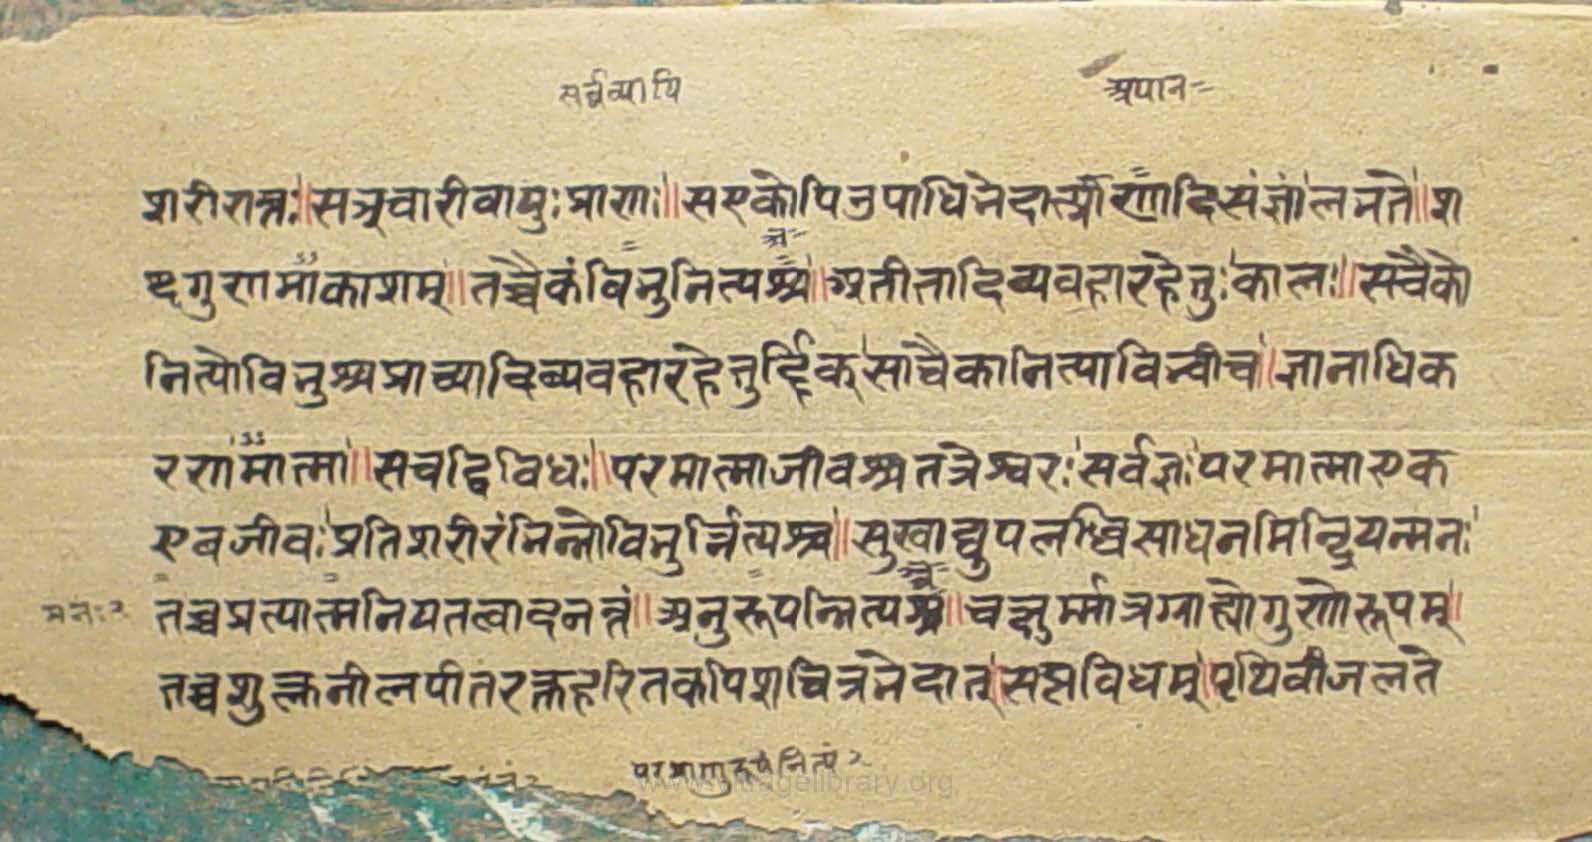 सर्वव्यापि अपान
शरीरान्तः॥ सञ्चारीवायुः प्राणः॥ सएकोपिउपाधिभेदात्प्राणादिसंज्ञां लभते॥ श
ब्दगुणमाकाशम्॥ तच्चैकंविभुनित्यञ्च॥ अतीतादिव्यवहारहेतुः कालः॥ सचैको
नित्योविभुश्चप्राच्यादिव्यवहारहेतुर्द्दिक् साचैकानित्याविभ्वीच॥ ज्ञानाधिक
रणमात्मा॥ सचद्विविधः॥ परमात्माजीवश्चतत्रेश्वरः सर्वज्ञः परमात्माएक
एवजीवः प्रतिशरीरंभिन्नोविभुर्न्नित्यश्च॥ सुखाद्युपलब्धिसाधनमिन्द्रियन्मनः
मनः२
तच्चप्रत्यात्मनियतत्वादनन्तं॥ अनुरूपन्नित्यञ्च॥ चक्षुर्म्मात्रग्राह्योगुणोरूपम्॥
तच्चशुक्लनीलपीतरक्तहरितकपिशचित्रभेदात् सप्तविधम् पृथिवीजलते
परमाणुरूपंनित्यं२
www.vitragelibrary.org